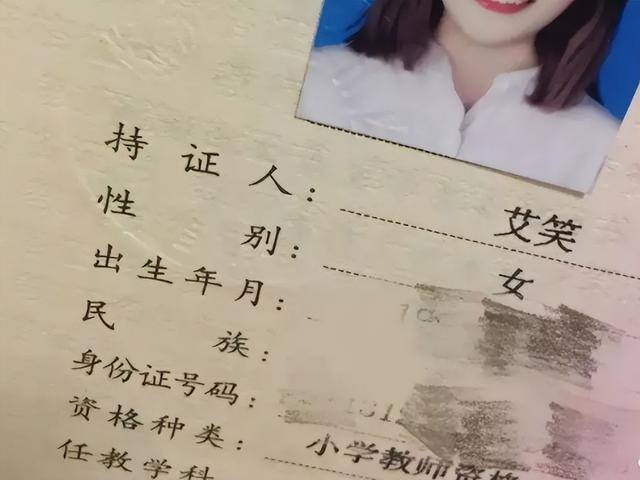 持证人： 艾笑
性别： 女
出生年月：
民族：
身份证号码：
资格种类： 小学教师资格
任教学科